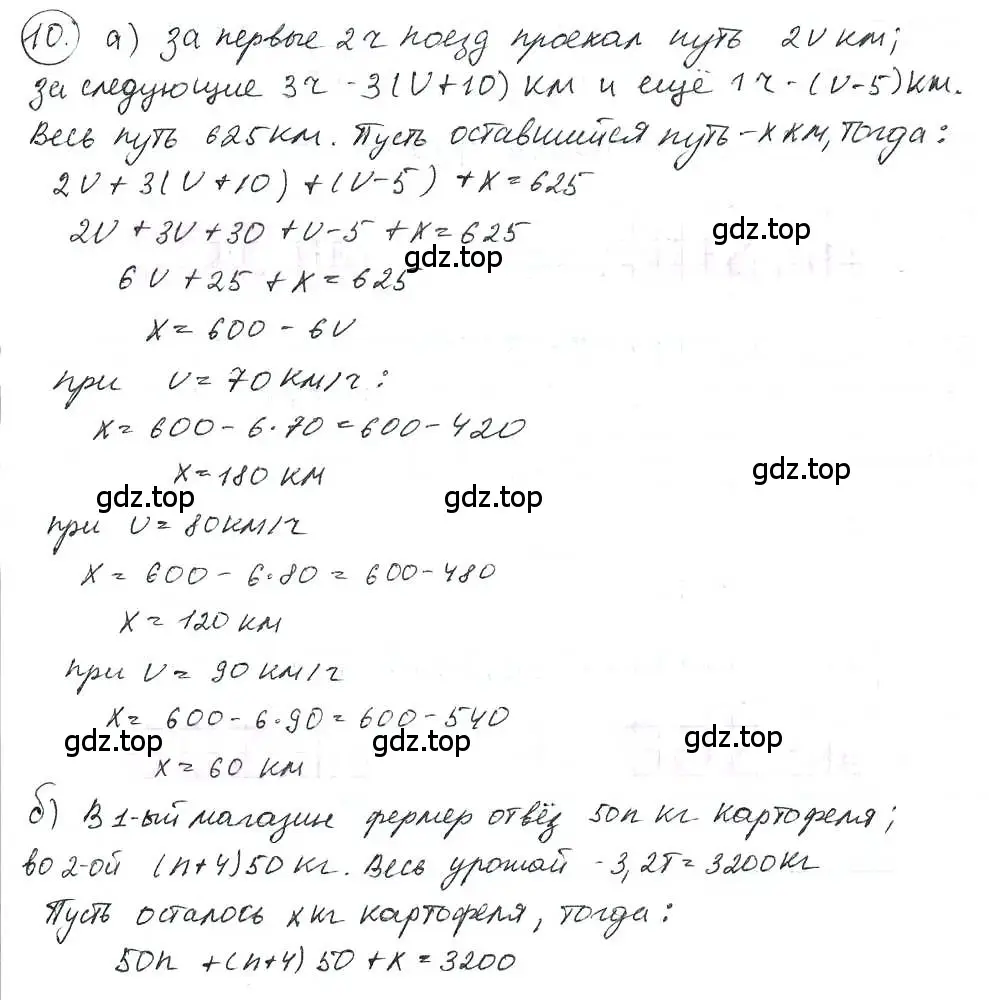 10. а) за первые 2 ч поезд проехал путь 2v км;
за следующие 3 ч - 3(v+10) км и ещё 1 ч - (v-5) км.
Весь путь 625 км. Пусть оставшийся путь - x км, тогда:
2v + 3(v+10) + (v-5) + x = 625
2v + 3v + 30 + v - 5 + x = 625
gdz.top
gdz.top
6v + 25 + x = 625
x = 600 - 6v
при v = 70 км/ч:
x = 600 - 6·70 = 600 - 420
x = 180 км
gdz.top
gdz.top
gdz.top
при v = 80 км/ч
x = 600 - 6·80 = 600 - 480
x = 120 км
при v = 90 км/ч
x = 600 - 6·90 = 600 - 540
gdz.top
gdz.top
gdz.top
x = 60 км
б) В 1-ый магазин фермер отвёз 50n кг картофеля;
во 2-ой (n+4)50 кг. Весь урожай - 3,2т = 3200 кг
Пусть осталось x кг картофеля, тогда:
50n + (n+4)50 + x = 3200